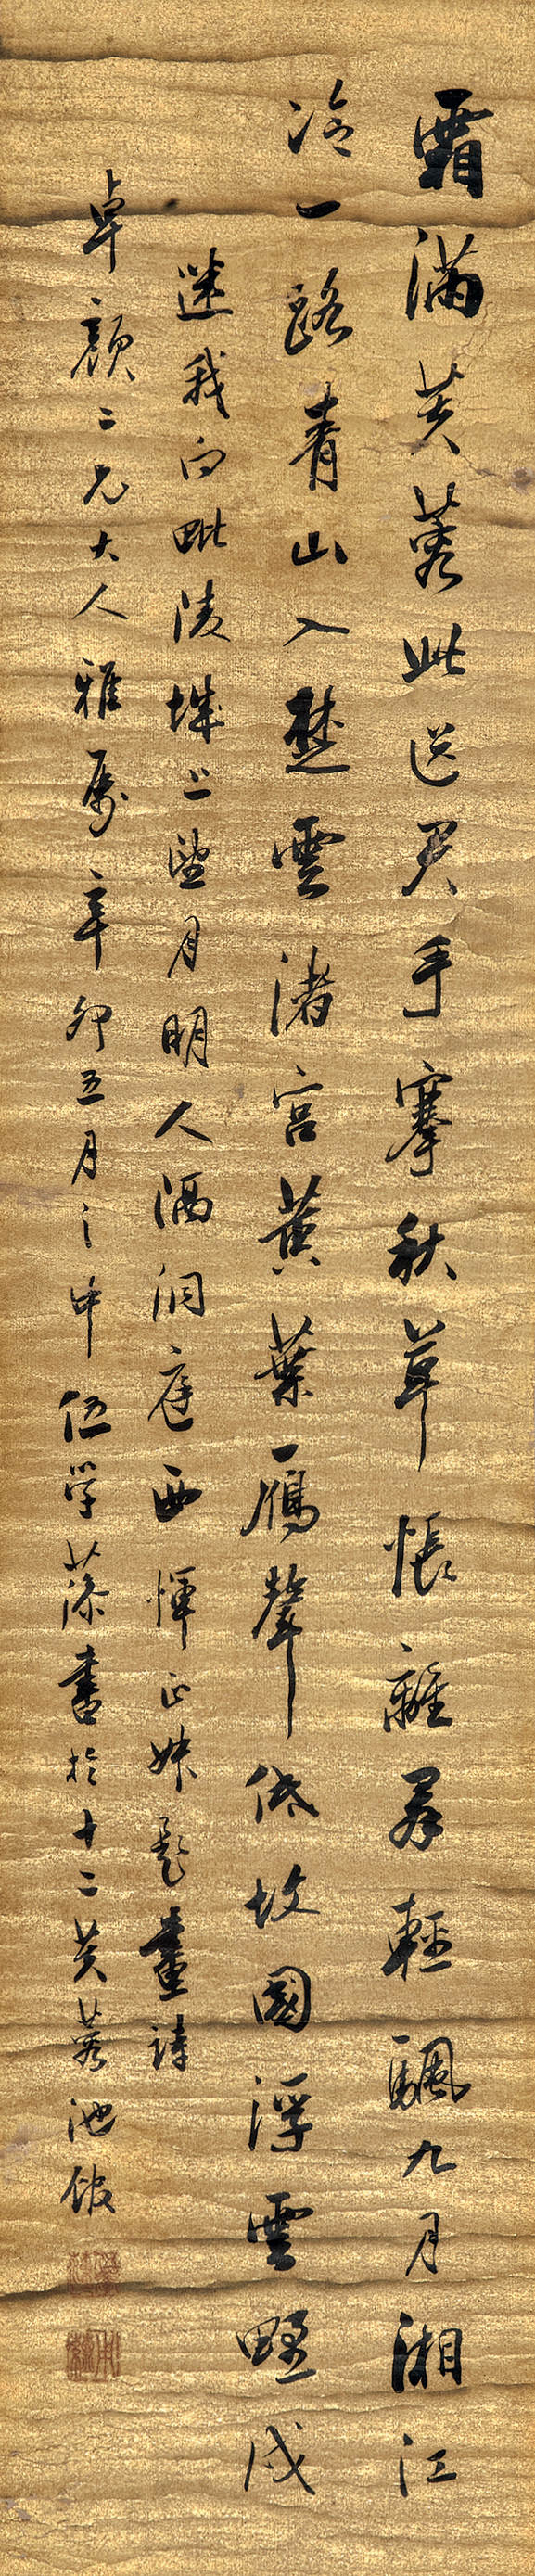 霜滿芙蓉此送君手搴秋草悵離羣輕颿九月湘江
冷一路青山入楚雲渚宮黃葉雁聲低故國浮雲野戍
迷我向毗陵城上望月明人隔洞庭西惲正叔題畫詩
卓顏二兄大人雅屬辛卯五月之中伍學藻書於十二芙蓉池館